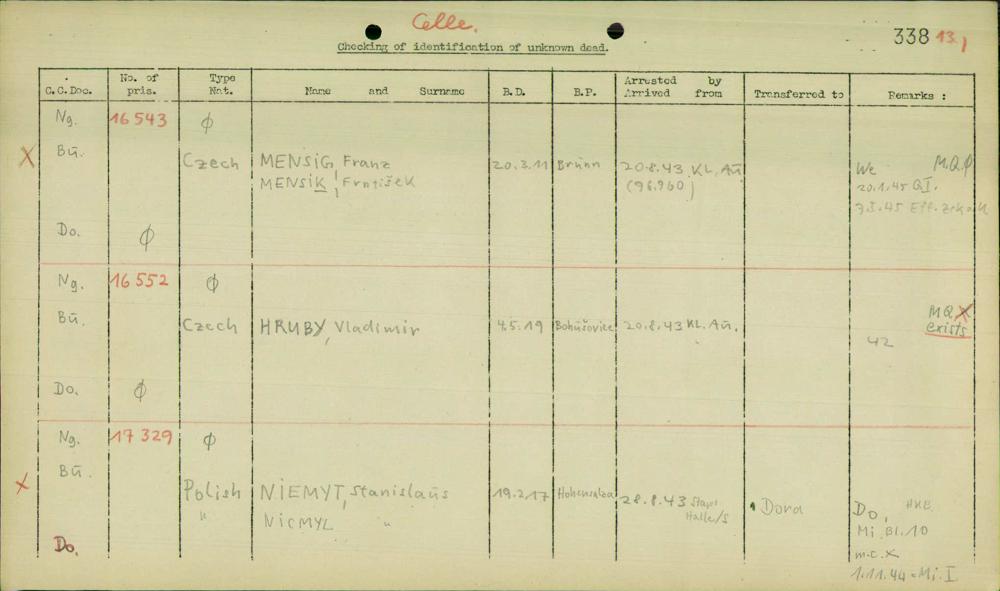 Celle.
338 13.)
Checking of identification of unknown dead.
C.C.Doc. No. of pris. Type Nat. Name and Surname B.D. B.P. Arrested by Arrived from Transferred to Remarks :
Ng. 16 543 ϕ
X Bū. Czech MENSIG, Franz 20.3.11 Brünn 20.8.43 KL. Aū. We M.Q.ϕ
MENSIK, Frntišek (96.960) 20.1.45 QI.
Do. ϕ
Ng. 16 552 ϕ
Bū. Czech HRUBY, Vladimir 4.5.19 Bohūšovice 20.8.43 KL. Aū. M.Q.X
exists
42
Do. ϕ
Ng. 17 329 ϕ
X Bū. Polish NIEMYT, Stanislaūs 19.2.17 Hohensalza 28.8.43 Stapo Halle/S Dora Do, HKB.
" NICMYL " Mi. Bl. 10
Do. m.c. X
1.11.44 = Mi. I.